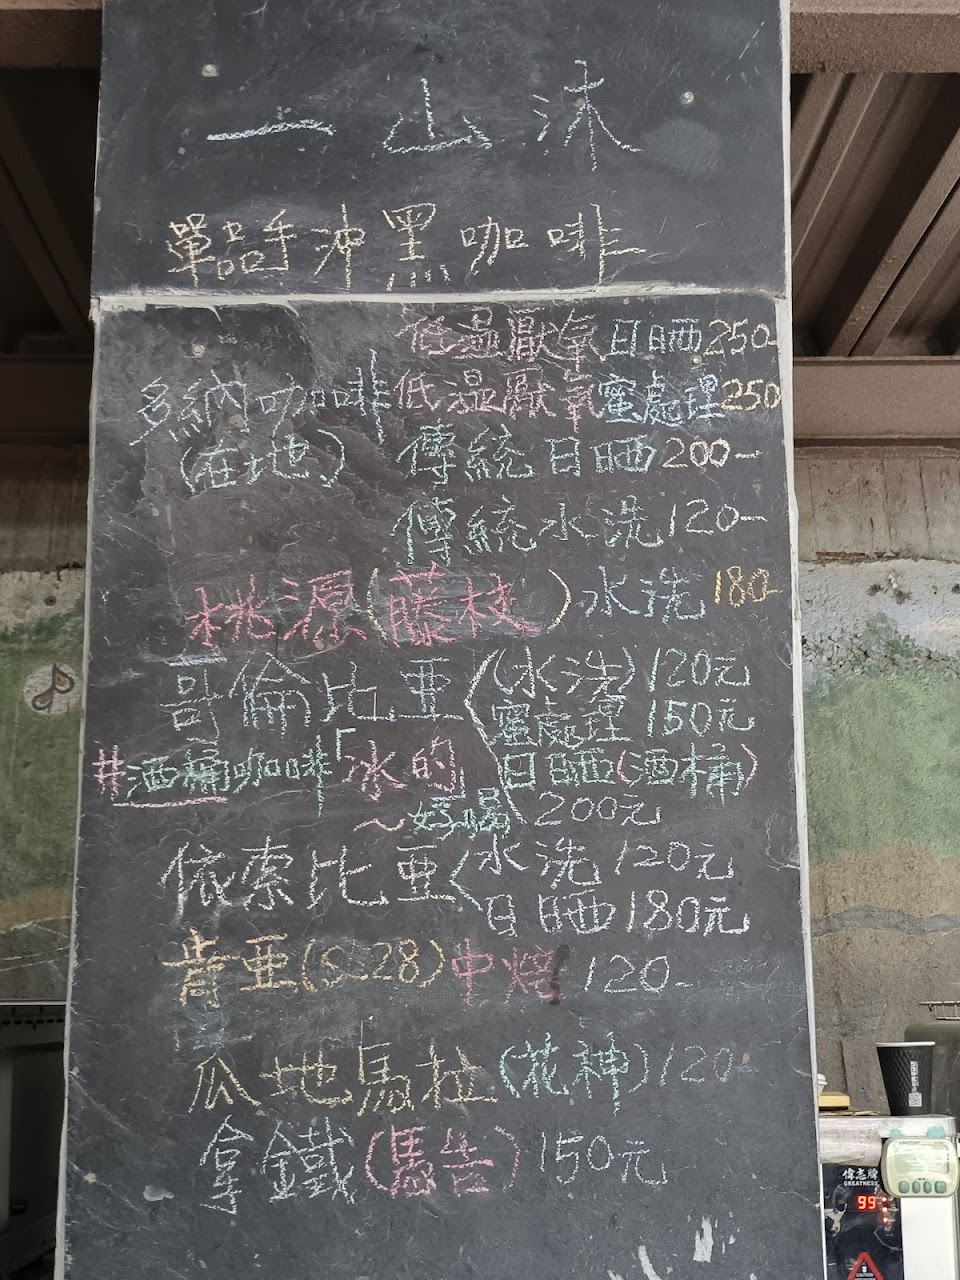 一山沐
單品手沖黑咖啡
低温厭氧日晒250-
多納咖啡低温厭氧蜜處理250
(在地)傳統日晒200-
傳統水洗120-
桃源(藤枝)水洗180-
哥倫比亜(水洗)120元
蜜處理150元
#酒桶咖啡「冰的」日晒(酒桶)
~好喝200元
依索比亜水洗120元
日晒180元
肯亜(S-28)中焙120-
瓜地馬拉(花神)120-
拿鐵(馬告)150元
偉志牌
GREATNESS
99
CAUTION